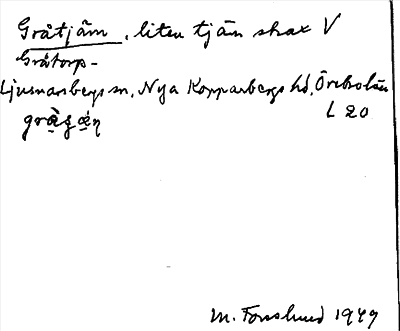 Gråtjärn, liten tjän strax V
Gråtorp-
Ljusnarsbergs sn, Nya Kopparbergs hd, Örebro län
L 20
M. Forslund 1949